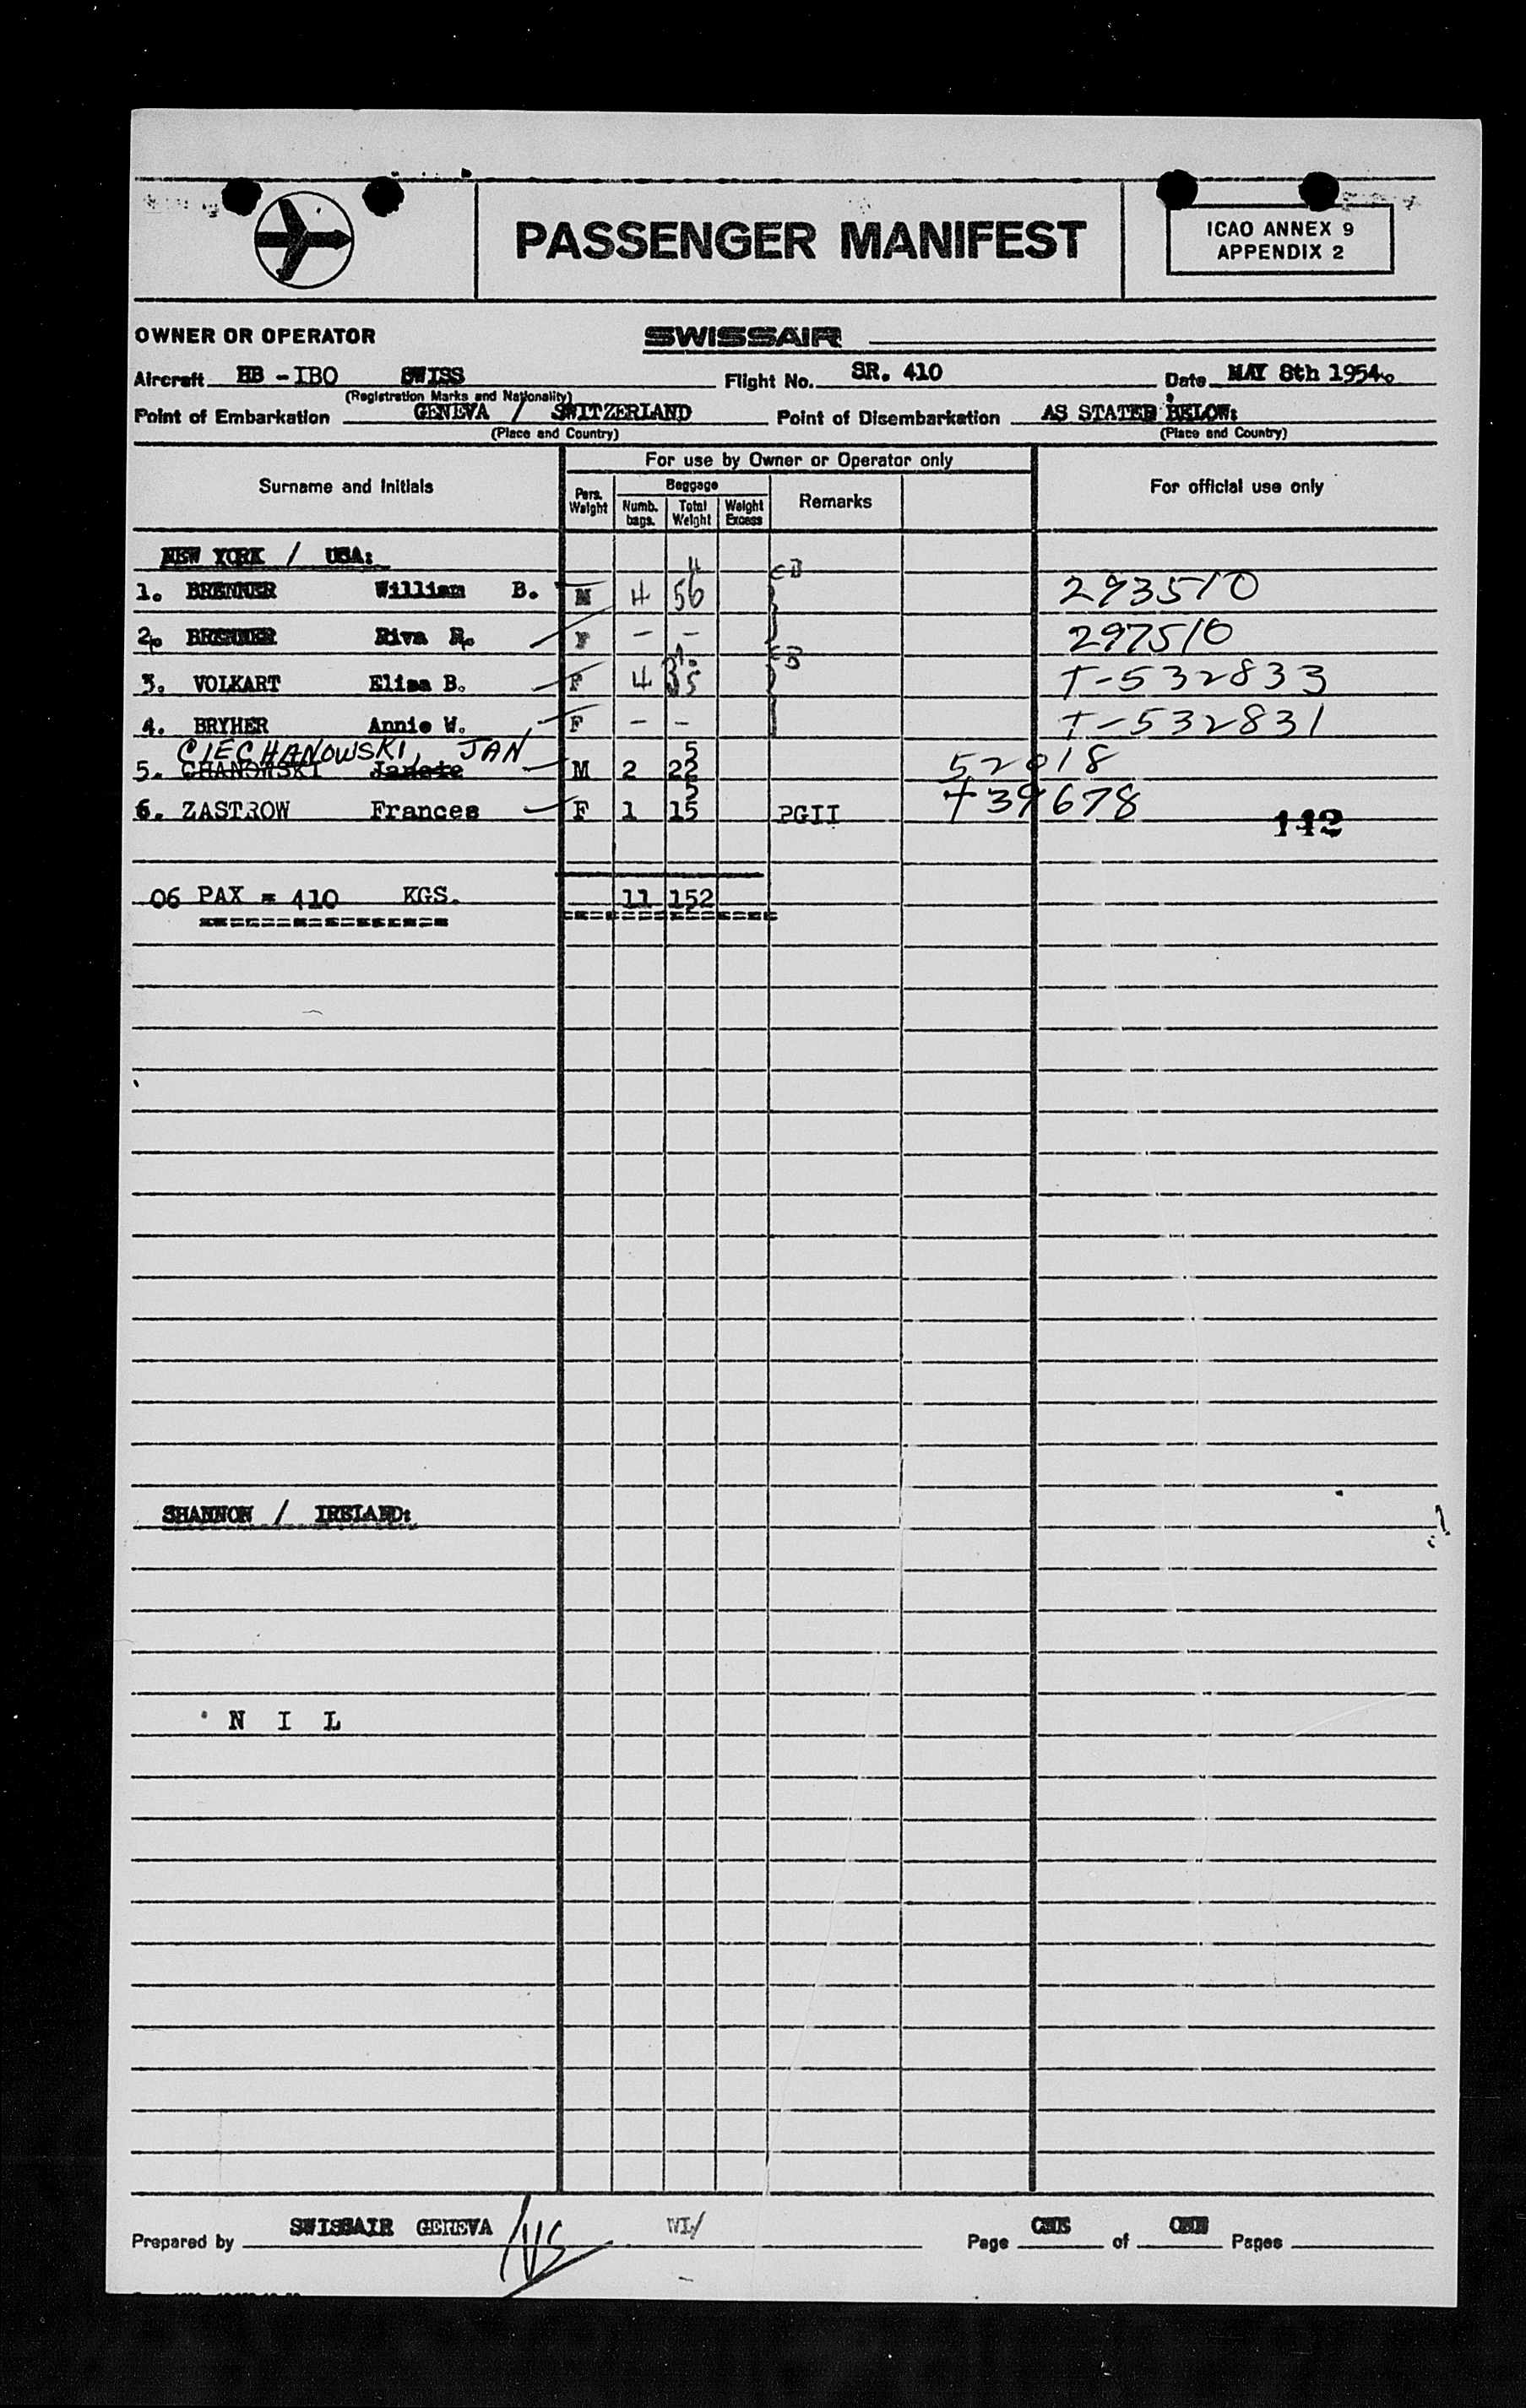 PASSENGER MANIFEST
ICAO ANNEX 9
APPENDIX 2
OWNER OR OPERATOR SWISSAIR
Aircraft HB - IBO SWISS Flight No. SR. 410 Date MAY 8th 1954.
(Registration Marks and Nationality)
Point of Embarkation GENEVA / SWITZERLAND Point of Disembarkation AS STATED BELOW:
(Place and Country) (Place and Country)
For use by Owner or Operator only
Surname and Initials Pers. Weight Baggage Remarks For official use only
Numb. bags. Total Weight Weight Excess
NEW YORK / USA:
1. BRENNER William B. M 4 56 293510
2. BRENNER Riva R. F - - 297510
3. VOLKART Elisa B. F 4 T-532833
4. BRYHER Annie W. F - - T-532831
CIECHANOWSKI, JAN
5. CHANOWSKI M 2 52018
6. ZASTROW Frances F 1 15 PGII T39678
112
06 PAX = 410 KGS. 11 152
SHANNON / IRELAND:
N I L
Prepared by SWISSAIR GENEVA /VS WI/ Page ONE of ONE Pages